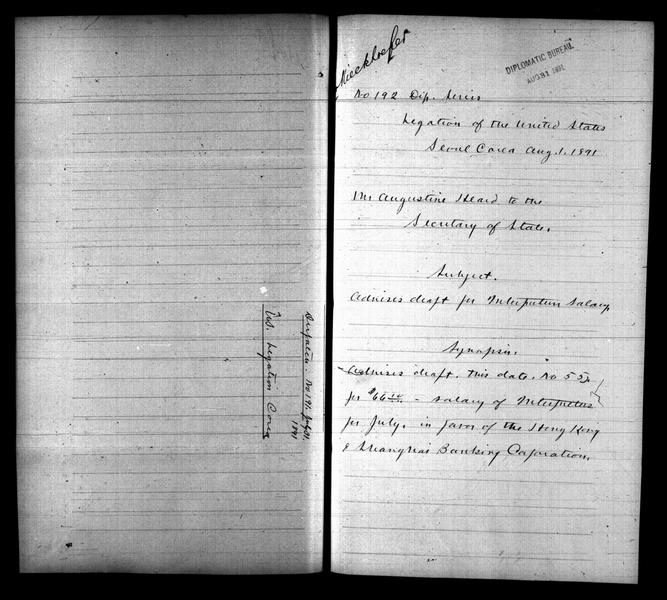 Despatch. No 191. July 31,
1891
U.S. Legation Corea
DIPLOMATIC BUREAU
AUG 31 1891
No 192 Dip. Series
Legation of the United States
Seoul Corea Aug. 1. 1891
Mr Augustine Heard to the
Secretary of State.
Subject.
Advises draft for Interpreters Salary
Synopsis.
Advises draft. this date. No 55.
for $66 – salary of Interpreters
for July. in favor of the Hong Kong
& Shanghai Banking Corporation.